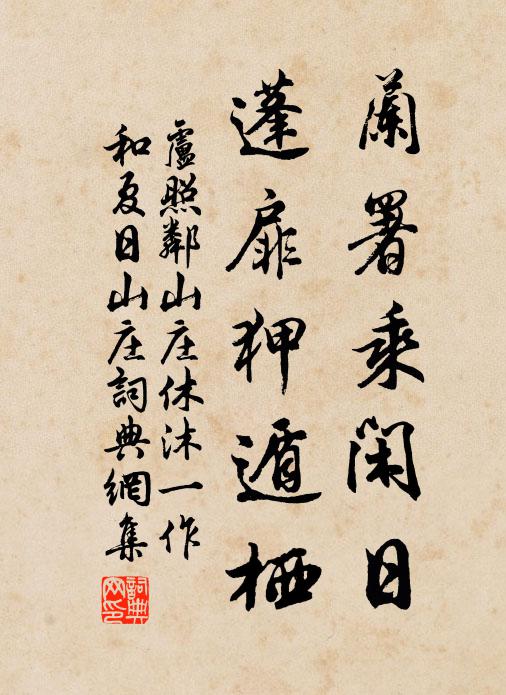 蘭署乘閑日
蓬扉狎遁栖
盧照鄰山庄休沐一作
和夏日山庄詞典網集
詞典
网印